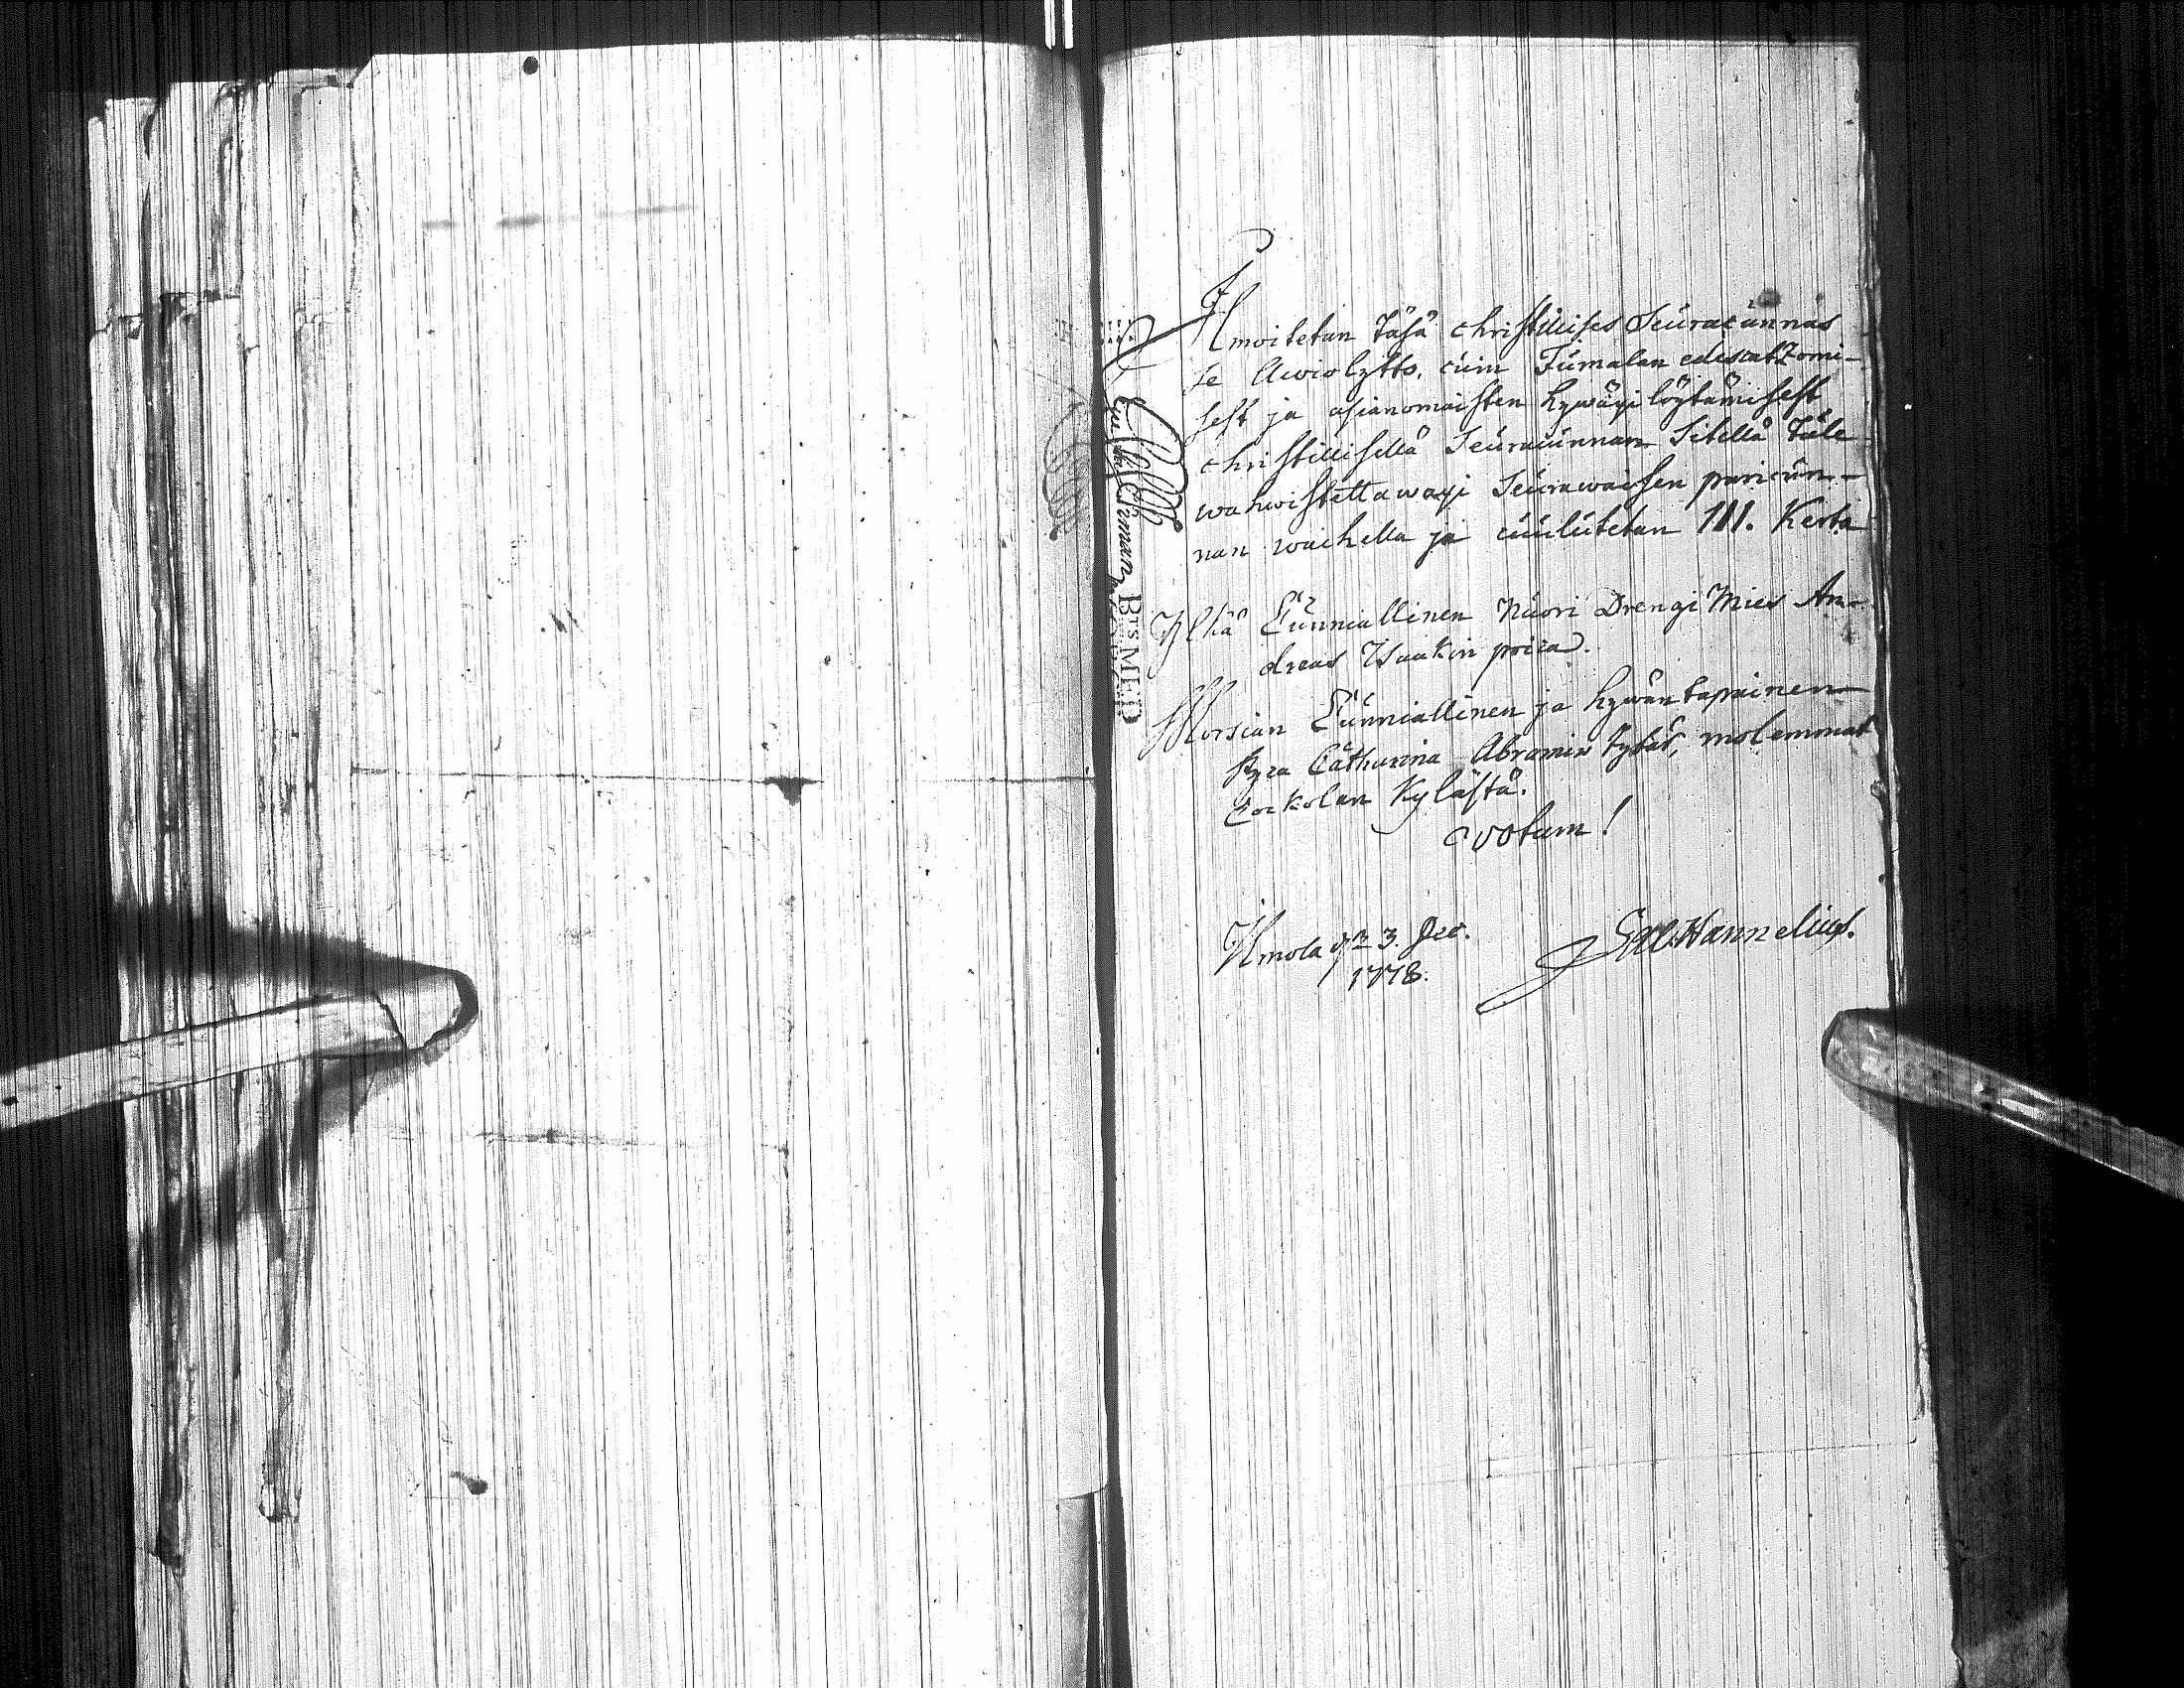 Ilmoitetan täsä christillises Seuracunnas
se Awiolytto, cuin Jumalan edescatzomi-
sest ja asianomaisten hywäxi löytämisest
christillisellä Seuracunnan Sitellä tule
wahwistettawaxi Seurawaisen paricun-
nan waihella ja cuulutetan III. Kerta
Ylkä Cunniallinen Nuori Drengi Mies An-
dreas Isaakin poica.
Morsian Cunniallinen ja hywäntapainen
Pyca Catharina Abramin tytär, molemmat
Cockolan Kylästä.
votum!
Ilmola d. 3. Dec.
1778.
Gab. Hannelius.
BTS MED